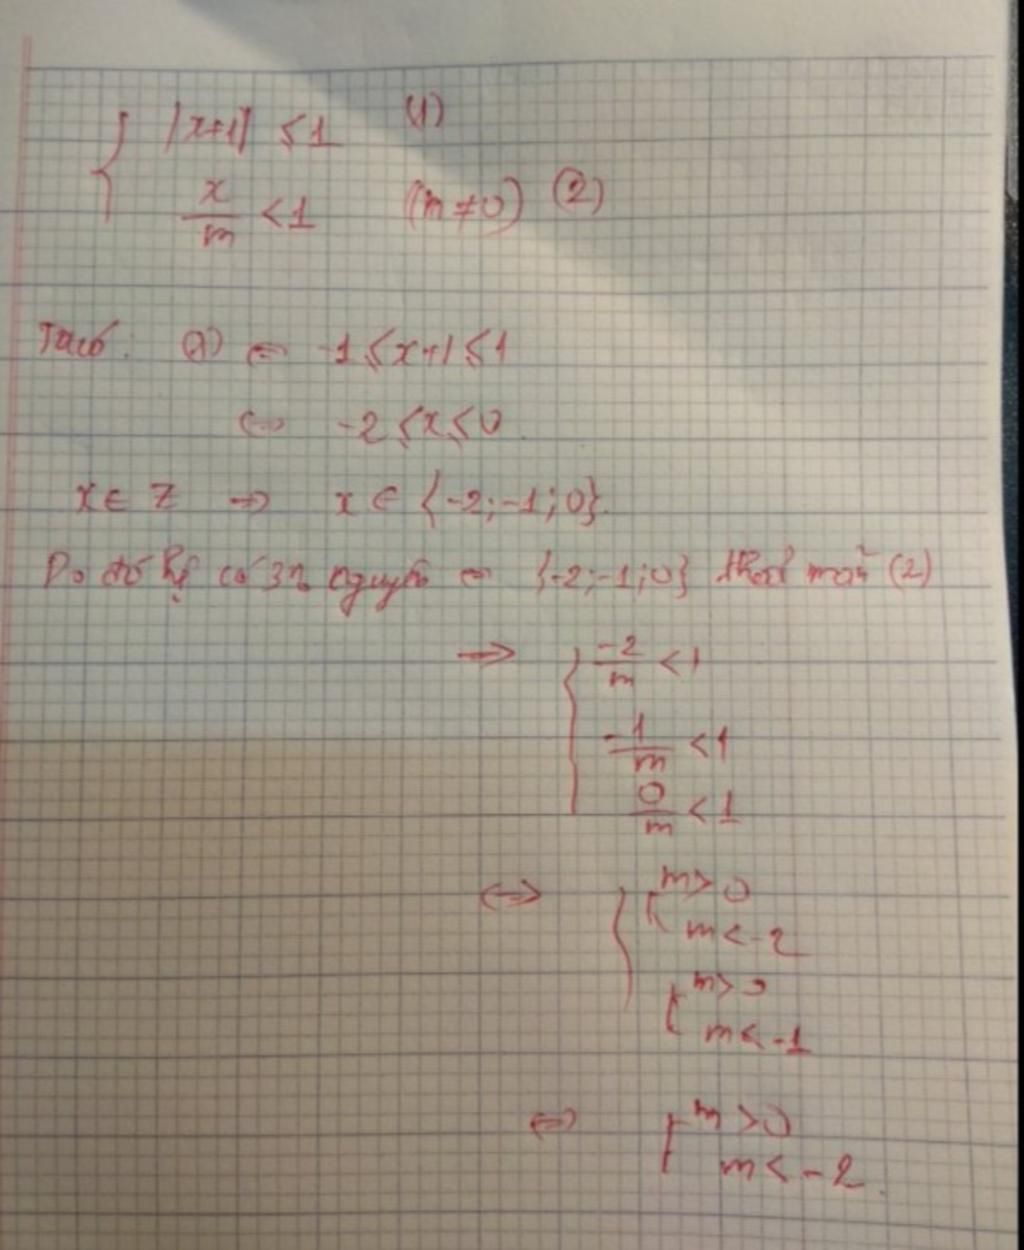 |x+1| ≤ 1 (1)
x/m < 1 (m ≠ 0) (2)
Ta có: (1) ⇔ -1 ≤ x+1 ≤ 1
⇔ -2 ≤ x ≤ 0.
x ∈ Z ⇒ x ∈ {-2; -1; 0}.
Do đó hệ có 3 ⇔ {-2; -1; 0} thoả mãn (2)
⇒ { -2/m < 1
-1/m < 1
0/m < 1
⇔ { [ m > 0
m < -2
[ m > 0
m < -1
⇔ [ m > 0
m < -2.